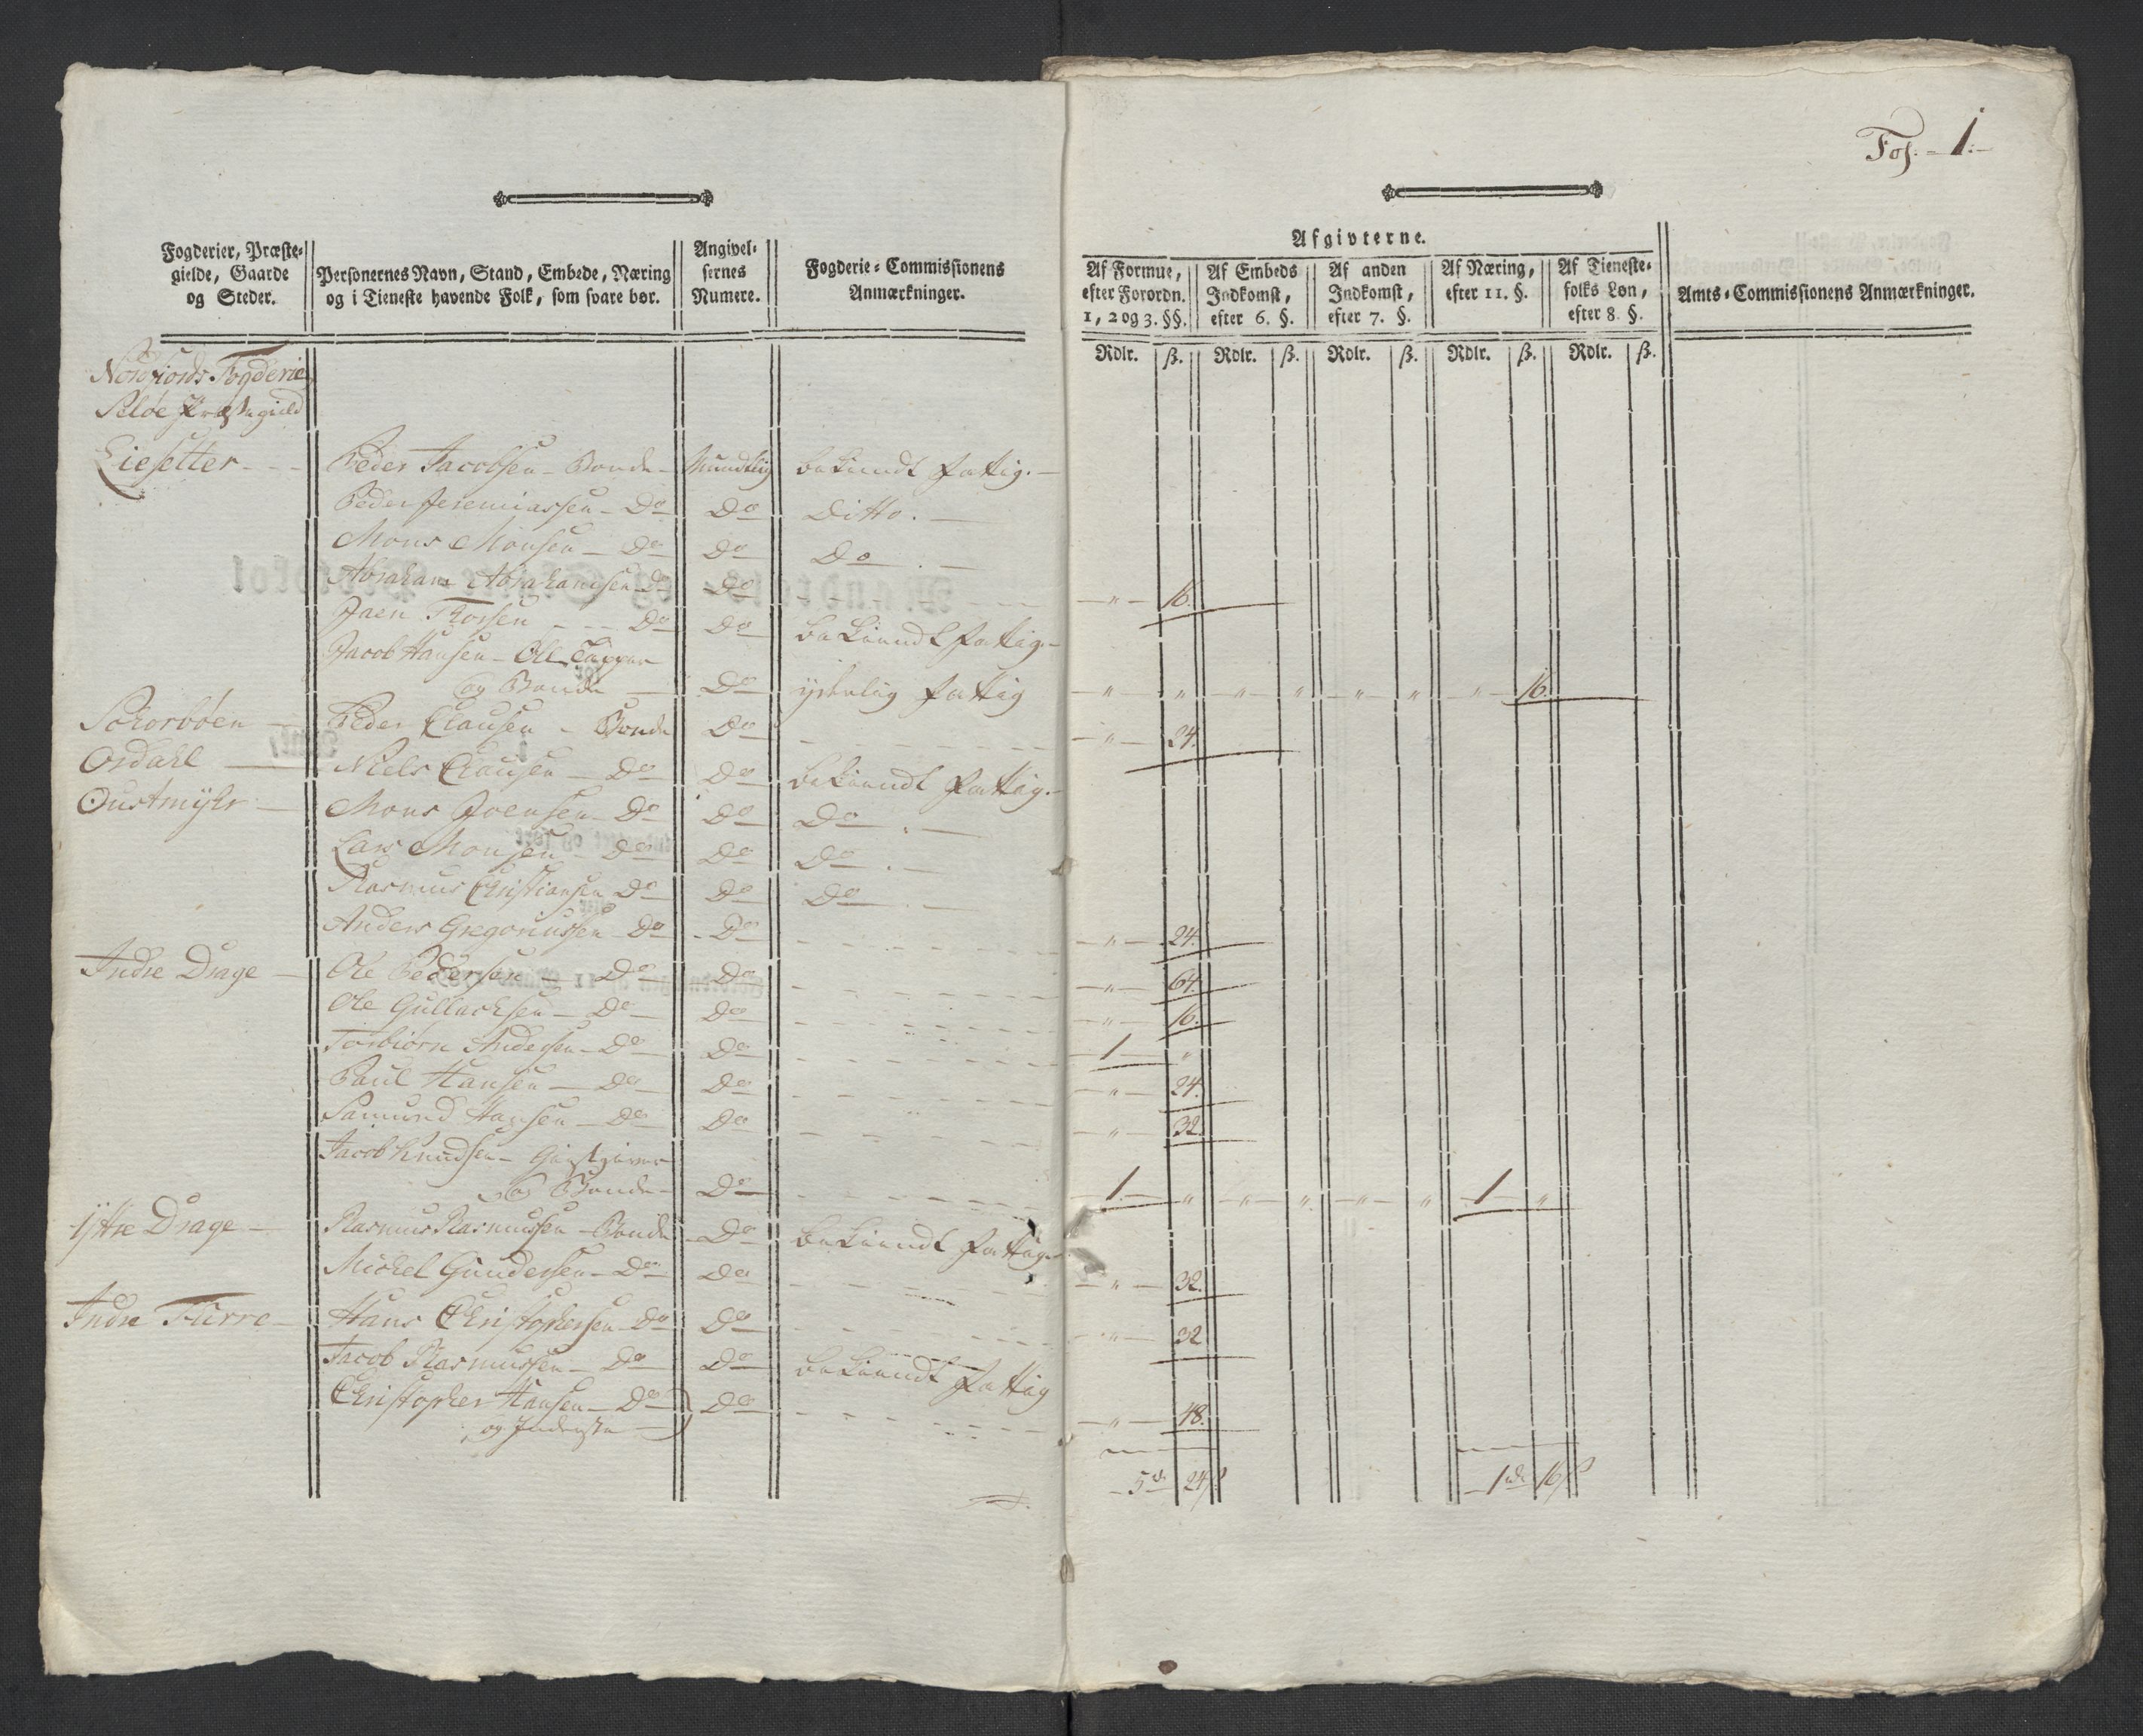 Fol. 1.
Fogderier, Præste-
gielde, Gaarde
og Steder.
Personernes Navn, Stand, Embede, Næring
og i Tieneste havende Folk, som svare bør.
Angivel-
sernes
Numere.
Fogderie-Commissionens
Anmærkninger.
Afgivterne.
Af Formue,
efter Forordn.
1, 2 og 3. §§.
Af Embeds
Indkomst,
efter 6. §.
Af anden
Indkomst,
efter 7. §.
Af Næring,
efter 11. §.
Af Tieneste-
folks Løn,
efter 8. §.
Amts-Commissionens Anmærkninger.
Rdlr. ß. Rdlr. ß. Rdlr. ß. Rdlr. ß. Rdlr. ß.
Nordfiords Fogderie
Seløe Præstegield
Liesetter - - Peder Jacobsen - Bonde - Mundtlig bekiendt fattig. -
Peder Jeremiassen - Do Do Ditto. -
Mons Monsen - Do Do Do . -
Abraham Abrahamsen Do Do - " - 16.
Jaen Thossen - - - Do Do bekiendt fattig. -
Jacob Hansen - Øll Tapper
og Bonde - Do yderlig fattig - " - " - " - " - " - " - " - 16.
Skorbøen - Peder Clausen - Bonde Do - " - 24.
Osdahl - Niels Clausen - Do Do bekiendt fattig. -
Oustmyhr - Mons Joensen - Do Do Do . -
Lars Monsen - Do Do Do . -
Rasmus Christiansen Do Do Do . -
Anders Gregoriussen - Do Do - " - 24.
Indre Drage - Ole Pedersen - Do Do - " - 64.
Ole Gullachsen - Do Do - " - 16.
Torbiørn Andersen - Do Do 1 - "
Paul Hansen - Do Do - " - 24.
Samund Hansen - Do Do - " - 32.
Jacob Knudsen - Giestgiver
og Bonde - Do 1. - " - " - " - " - " 1 "
Yttre Drage - Rasmus Rasmussen - Bonde Do bekiendt fattig. -
Michel Gundersen - Do Do - " - 32.
Indre Flerre - Hans Christophersen - Do Do - " - 32
Jacob Rasmussen - Do Do bekiendt fattig
Christopher Hansen - Do Do - " - 48.
og Inderste -
5 rd 24 ß 1 rd 16 ß